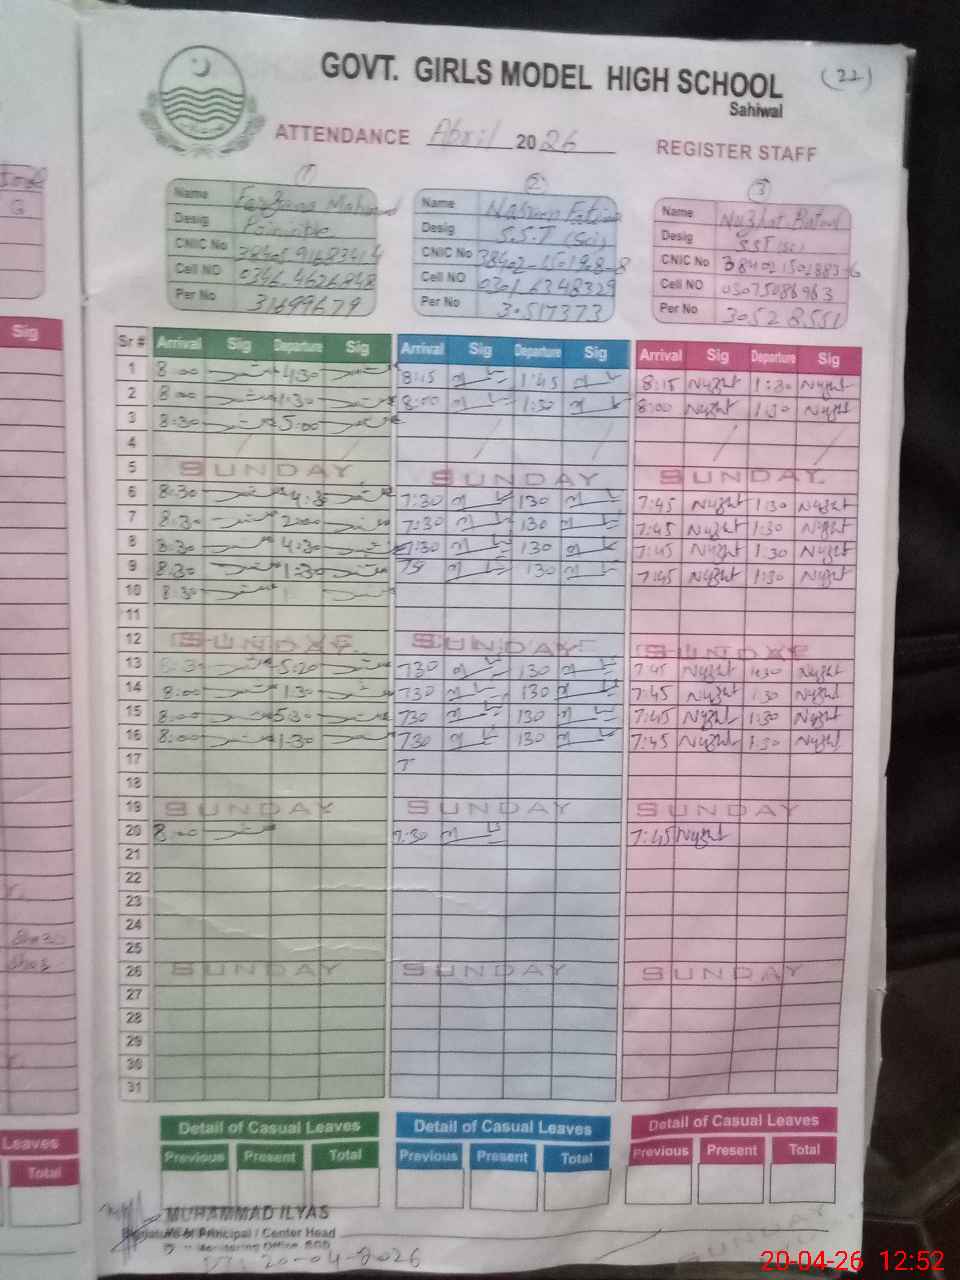 GOVT. GIRLS MODEL HIGH SCHOOL (22)
Sahiwal
ATTENDANCE April 2026 REGISTER STAFF
① ② ③
Name
Desig
CNIC No
Cell NO 0346.4626848
Per No 31699679
Name Nasreen Fatima
Desig S.S.T (Sci)
CNIC No
Cell NO 0301 6348329
Per No 30517373
Name Nuzhat Batool
Desig SST (Sc)
CNIC No
Cell NO 03075086963
Per No 30528551
Sig
Sr # Arrival Sig Departure Sig Arrival Sig Departure Sig Arrival Sig Departure Sig
1 8:00 4:30 8:15 1:45 8:15 Nuzht 1:30 Nuzht
2 8:00 1:30 8:00 1:30 8:00 Nuzht 1:30 Nuzht
3 8:30 5:00
4
5 SUNDAY SUNDAY SUNDAY
6 8:30 4:30 7:30 130 7:45 Nuzht 1:30 Nuzht
7 8:30 2:00 7:30 130 7:45 Nuzht 1:30 Nuzht
8 8:30 4:30 7:30 130 7:45 Nuzht 1:30 Nuzht
9 8:30 1:30 130 7:45 Nuzht 1:30 Nuzht
10 8:30
11
12 SUNDAY SUNDAY SUNDAY
13 5:20 730 130 7:45 Nuzht Nuzht
14 8:00 1:30 730 130 7:45 Nuzht 1:30 Nuzht
15 8:00 5:30 730 130 7:45 Nuzht 1:30 Nuzht
16 8:00 1:30 730 130 7:45 Nuzht 1:30 Nuzht
17
18
19 SUNDAY SUNDAY SUNDAY
20 8:00 7:30 7:45 Nuzht
21
22
23
24
25
26 SUNDAY SUNDAY SUNDAY
27
28
29
30
31
Detail of Casual Leaves Detail of Casual Leaves Detail of Casual Leaves
Leaves
Previous Present Total Previous Present Total Previous Present Total
Total
MUHAMMAD ILYAS
Signature of Principal / Center Head
Monitoring Officer
20-04-2026
SUNDAY
20-04-26 12:52